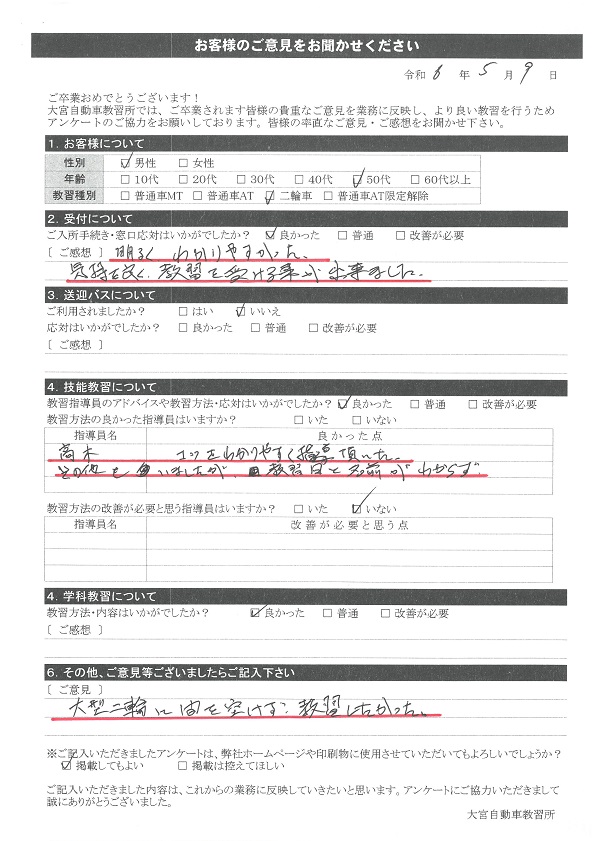 お客様のご意見をお聞かせください
令和 6 年 5 月 9 日
ご卒業おめでとうございます！
大宮自動車教習所では、ご卒業されます皆様の貴重なご意見を業務に反映し、より良い教習を行うため
アンケートのご協力をお願いしております。皆様の率直なご意見・ご感想をお聞かせ下さい。
1. お客様について
性別 ☑男性 □女性
年齢 □10代 □20代 □30代 □40代 ☑50代 □60代以上
教習種別 □普通車MT □普通車AT ☑二輪車 □普通車AT限定解除
2. 受付について
ご入所手続き・窓口応対はいかがでしたか？ ☑良かった □普通 □改善が必要
［ご感想］ 明るく わかりやすかった。
気持ち良く、教習を受ける事が出来ました。
3. 送迎バスについて
ご利用されましたか？ □はい ☑いいえ
応対はいかがでしたか？ □良かった □普通 □改善が必要
［ご感想］
4. 技能教習について
教習指導員のアドバイスや教習方法・応対はいかがでしたか？ ☑良かった □普通 □改善が必要
教習方法の良かった指導員はいますか？ □いた □いない
指導員名 良かった点
高木 コツをわかりやすく指導頂いた。
その他も 居ましたが、教習日と名前がわからず
教習方法の改善が必要と思う指導員はいますか？ □いた ☑いない
指導員名 改善が必要と思う点
4. 学科教習について
教習方法・内容はいかがでしたか？ ☑良かった □普通 □改善が必要
［ご感想］
6. その他、ご意見等ございましたらご記入下さい
［ご意見］
大型二輪に間を空けず、教習したかった。
※ご記入いただきましたアンケートは、弊社ホームページや印刷物に使用させていただいてもよろしいでしょうか？
☑掲載してもよい □掲載は控えてほしい
ご記入いただきました内容は、これからの業務に反映していきたいと思います。アンケートにご協力いただきまして
誠にありがとうございました。
大宮自動車教習所